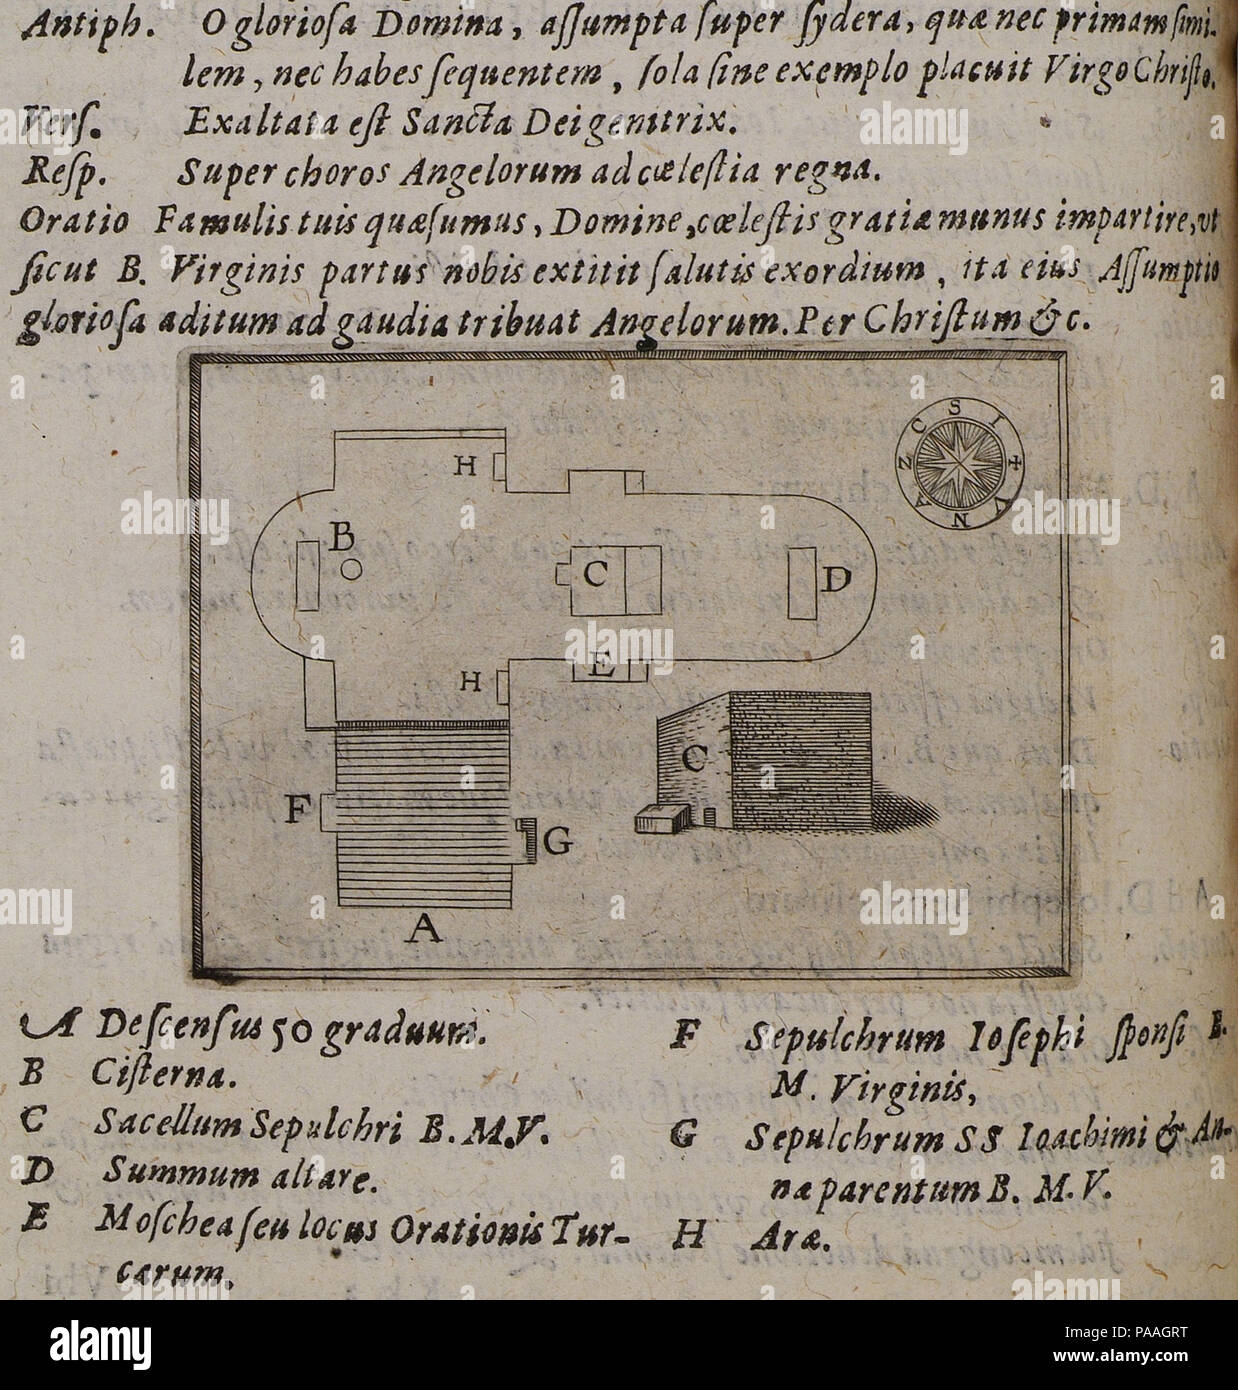 Antiph. O glorioſa Domina, aſſumpta ſuper ſydera, quæ nec primam ſimi-
lem, nec habes ſequentem, ſola ſine exemplo placuit Virgo Chriſto.
Verſ. Exaltata eſt Sancta Dei genitrix.
Reſp. Super choros Angelorum ad cœleſtia regna.
Oratio Famulis tuis quæſumus, Domine, cœleſtis gratiæ munus impartire, ut
ſicut B. Virginis partus nobis extitit ſalutis exordium, ita eius Aſſumptio
glorioſa aditum ad gaudia tribuat Angelorum. Per Chriſtum &c.
S
C I
H
Z +
A V
N
B
C D
H E
C
F
G
A
A Deſcenſus 50 graduum.
B Ciſterna.
C Sacellum Sepulchri B. M. V.
D Summum altare.
E Moſchea ſeu locus Orationis Tur-
carum.
F Sepulchrum Ioſephi ſponſi B.
M. Virginis,
G Sepulchrum SS Ioachimi & An-
næ parentum B. M. V.
H Aræ.
alamy
a
Image ID: PAAGRT
www.alamy.com